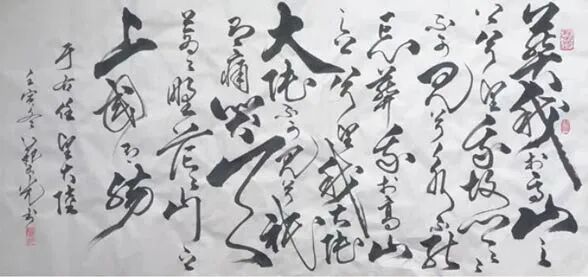 葬我於高山之
上兮望我故乡
不可見兮永不能
忘葬我於高山
之上兮望我大陸
大陸不可見兮祇
有痛哭天
蒼々野茫々山之
上國有殤
于右任望大陸
壬寅冬 书